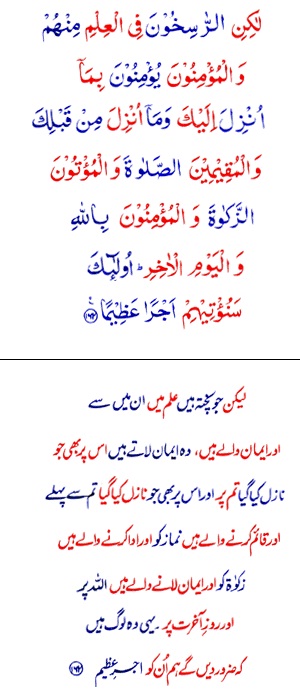 لٰكِنِ الرّٰسِخُوْنَ فِى الْعِلْمِ مِنْهُمْ
وَ الْمُؤْمِنُوْنَ يُؤْمِنُوْنَ بِمَاۤ
اُنْزِلَ اِلَيْكَ وَمَاۤ اُنْزِلَ مِنْ قَبْلِكَ
وَ الْمُقِيْمِيْنَ الصَّلٰوةَ وَ الْمُؤْتُوْنَ
الزَّكٰوةَ وَ الْمُؤْمِنُوْنَ بِاللّٰهِ
وَ الْيَوْمِ الْاٰخِرِ ؕ اُولٰٓئِكَ
سَنُؤْتِيْهِمْ اَجْرًا عَظِيْمًا ﴿۱۶۲﴾
لیکن جو پختہ ہیں علم میں ان میں سے
اور ایمان والے ہیں، وہ ایمان لاتے ہیں اس پر بھی جو
نازل کیا گیا تم پر اور اس پر بھی جو نازل کیا گیا تم سے پہلے
اور قائم کرنے والے ہیں نماز کو اور ادا کرنے والے ہیں
زکوٰۃ کو اور ایمان لانے والے ہیں اللہ پر
اور روزِ آخرت پر۔ یہی وہ لوگ ہیں
کہ ضرور دیں گے ہم اُن کو اجرِ عظیم ﴿۱۶۲﴾